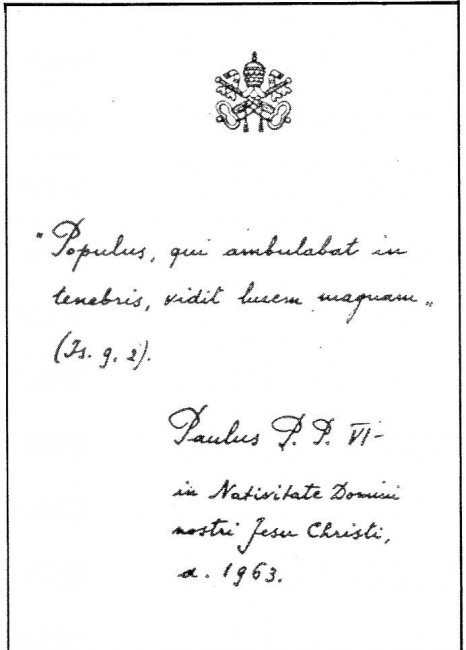 "Populus, qui ambulabat in
tenebris, vidit lucem magnam"
(Is. 9, 2).
Paulus P. P. VI-
in Nativitate Domini
nostri Jesu Christi,
a. 1963.